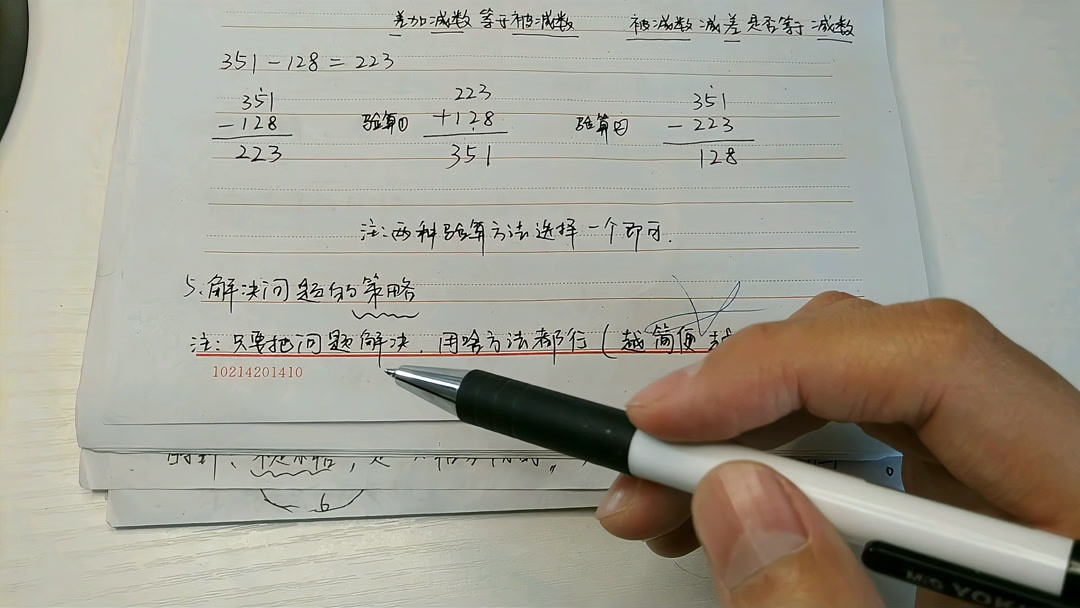 差加减数等于被减数 被减数减差是否等于减数
351-128=223
351 223 351
-128 验算① +128 验算② -223
223 351 128
注:两种验算方法选择一个即可.
5、解决问题的策略
注:只要把问题解决,用啥方法都行(越简便越
10214201410
6
M&G